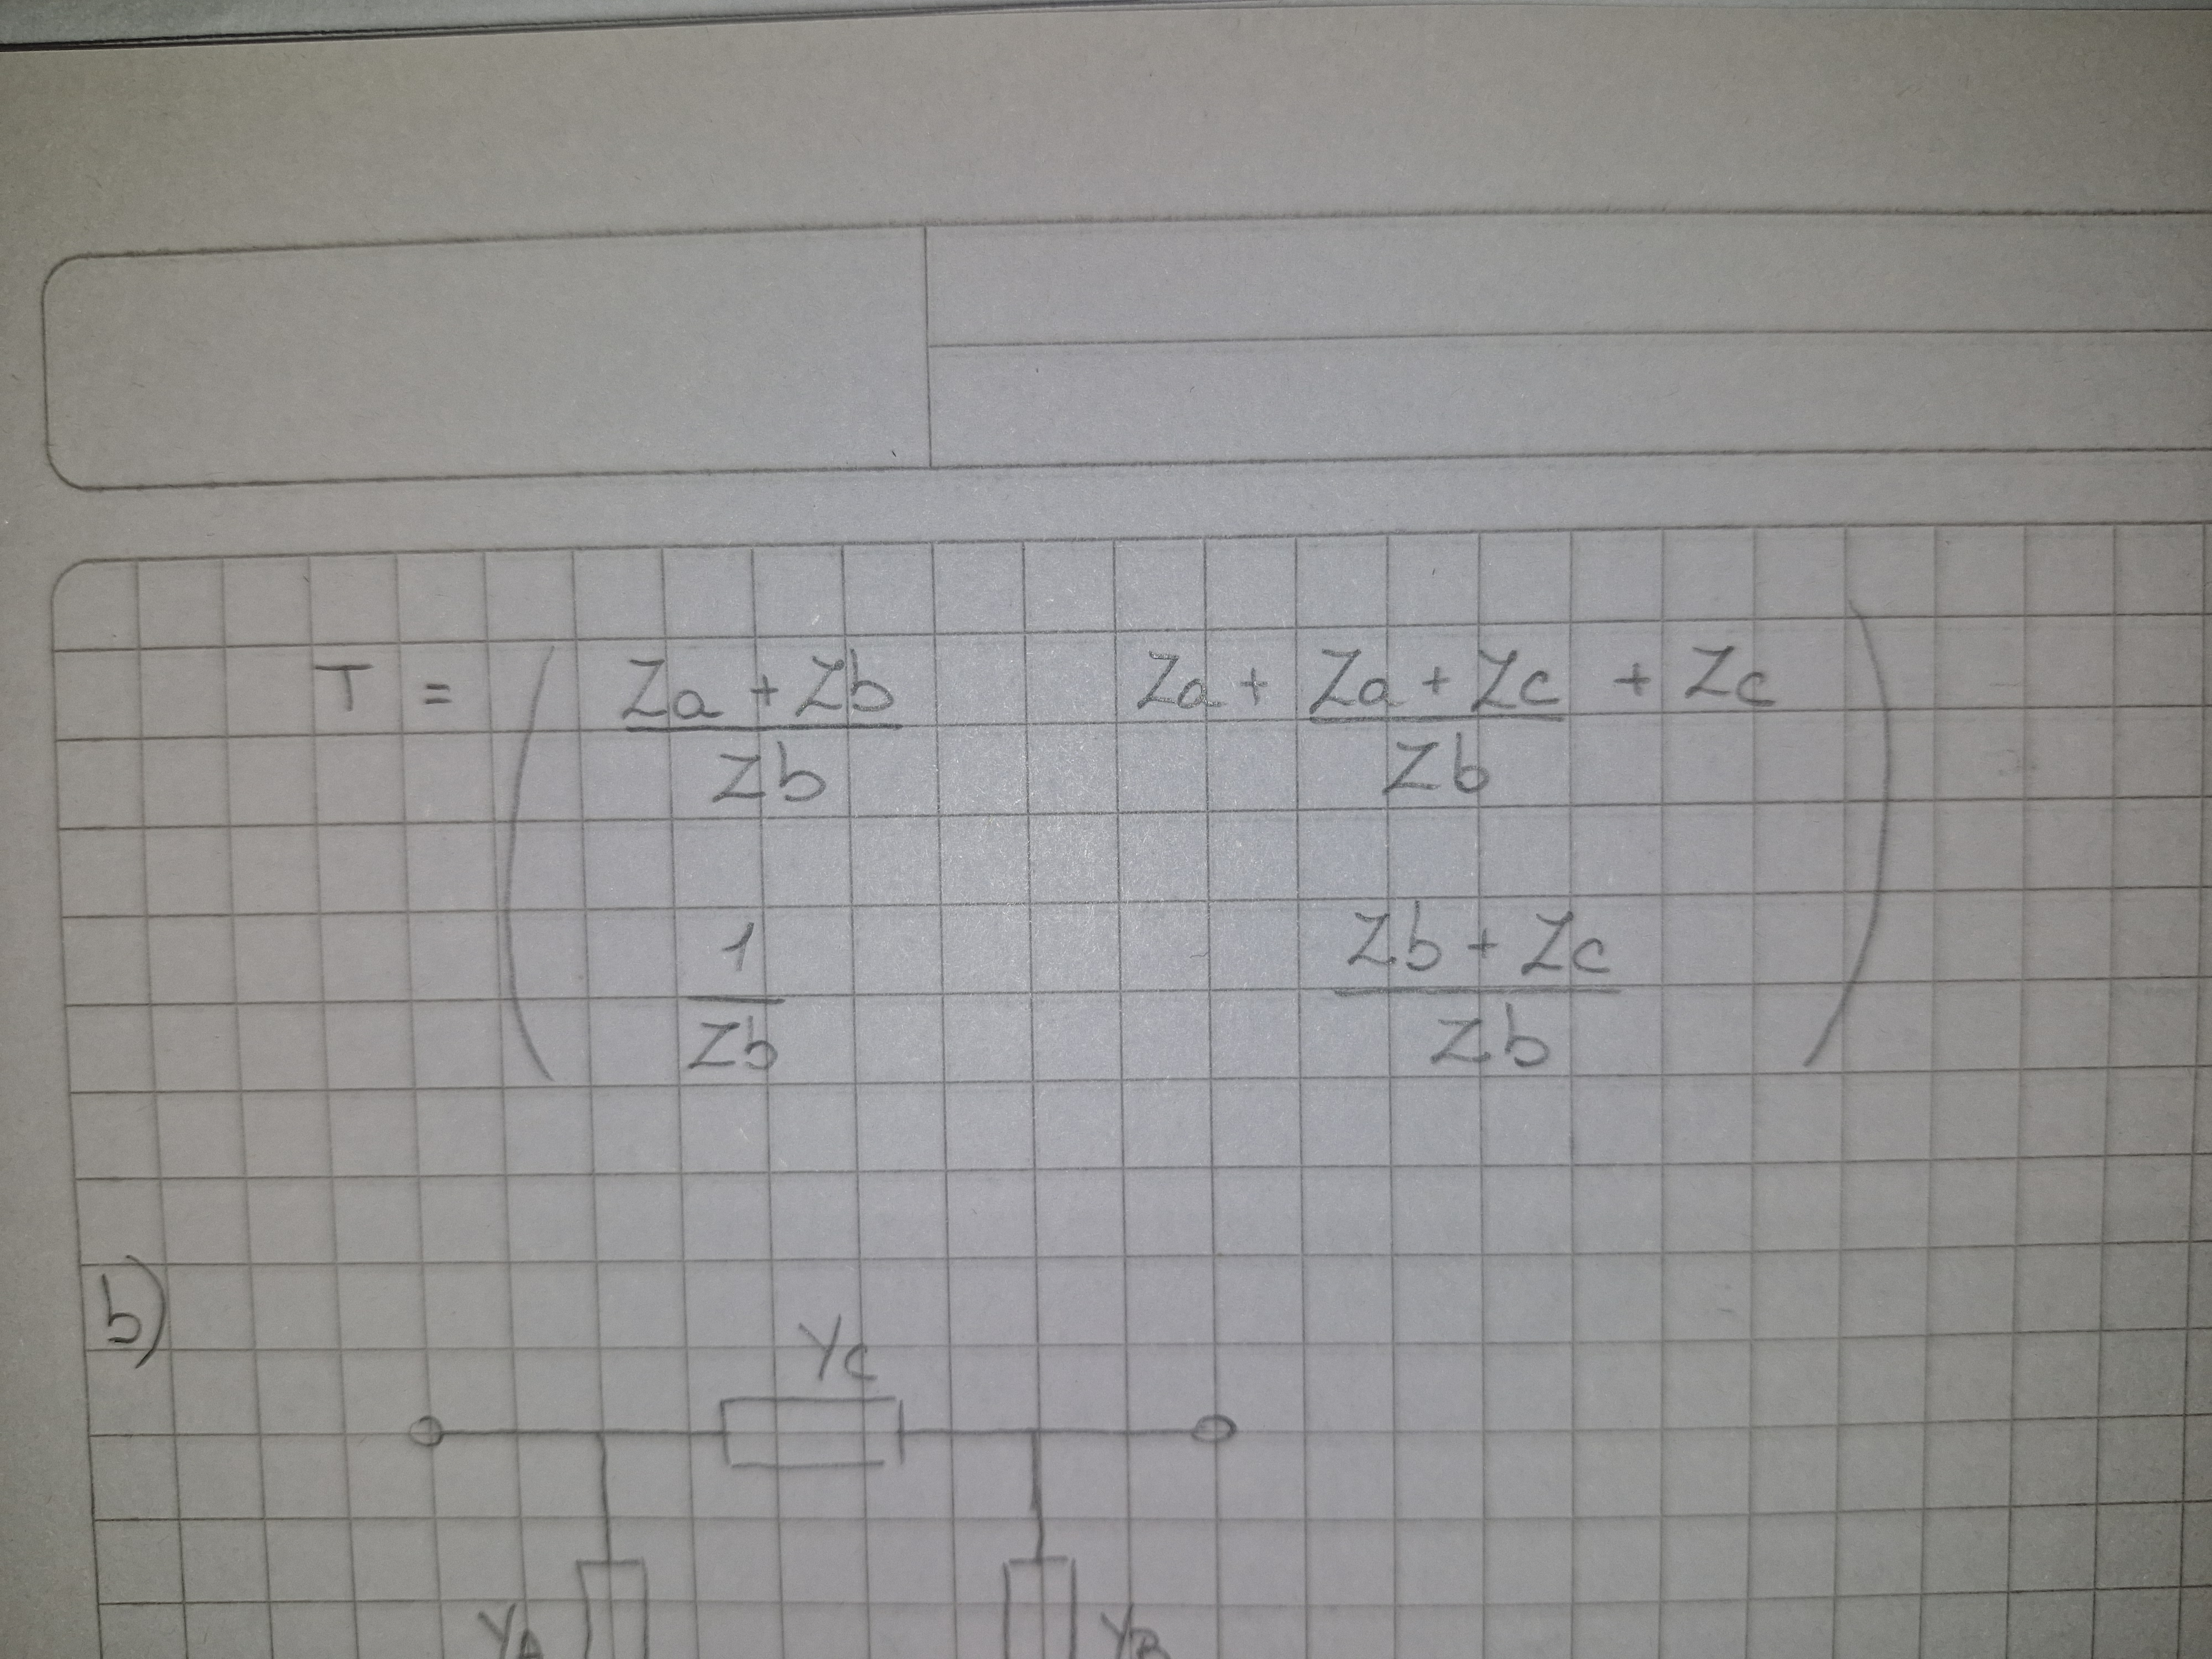 T = ( Za + Zb / Zb   Za + Za + Zc / Zb + Zc
1 / Zb   Zb + Zc / Zb )
b)
Yc
YA YB